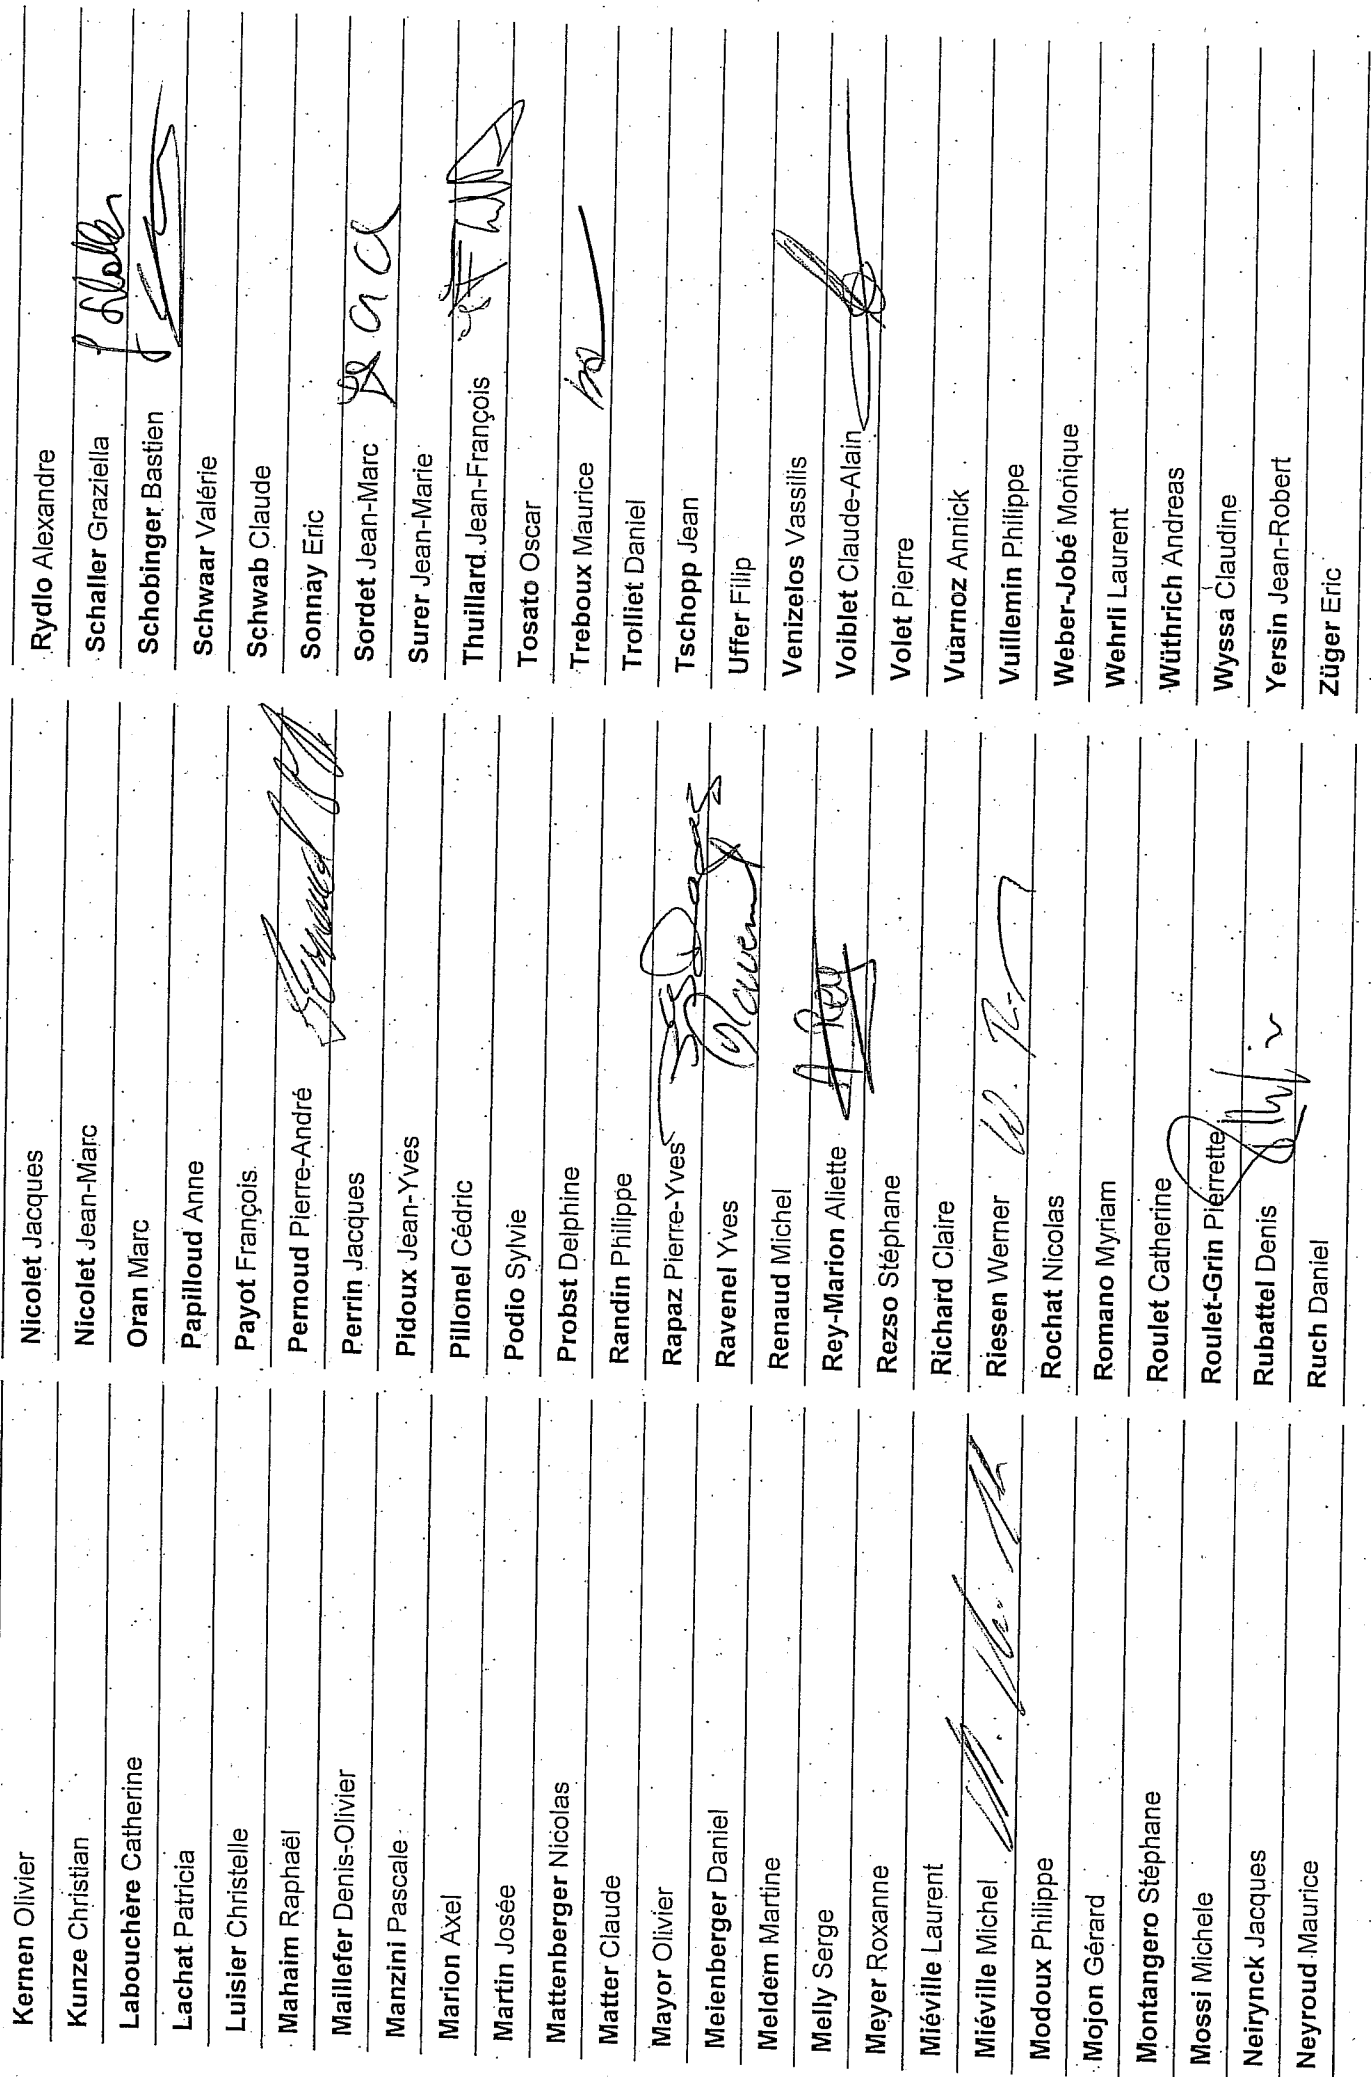 Kernen Olivier
Kunze Christian
Labouchère Catherine
Lachat Patricia
Luisier Christelle
Mahaim Raphaël
Maillefer Denis-Olivier
Manzini Pascale
Marion Axel
Martin Josée
Mattenberger Nicolas
Matter Claude
Mayor Olivier
Meienberger Daniel
Meldem Martine
Melly Serge
Meyer Roxanne
Miéville Laurent
Miéville Michel
Modoux Philippe
Mojon Gérard
Montangero Stéphane
Mossi Michele
Neirynck Jacques
Neyroud Maurice
Nicolet Jacques
Nicolet Jean-Marc
Oran Marc
Papilloud Anne
Payot François
Pernoud Pierre-André
Perrin Jacques
Pidoux Jean-Yves
Pillonel Cédric
Podio Sylvie
Probst Delphine
Randin Philippe
Rapaz Pierre-Yves
Ravenel Yves
Renaud Michel
Rey-Marion Aliette A Rey
Rezso Stéphane
Richard Claire
Riesen Werner
Rochat Nicolas
Romano Myriam
Roulet Catherine
Roulet-Grin Pierrette
Rubattel Denis
Ruch Daniel
Rydlo Alexandre
Schaller Graziella
Schobinger Bastien
Schwaar Valérie
Schwab Claude
Sonnay Eric
Sordet Jean-Marc
Surer Jean-Marie
Thuillard Jean-François
Tosato Oscar
Treboux Maurice
Trolliet Daniel
Tschopp Jean
Uffer Filip
Venizelos Vassilis
Voiblet Claude-Alain
Volet Pierre
Vuarnoz Annick
Vuillemin Philippe
Weber-Jobé Monique
Wehrli Laurent
Wüthrich Andreas
Wyssa Claudine
Yersin Jean-Robert
Züger Eric